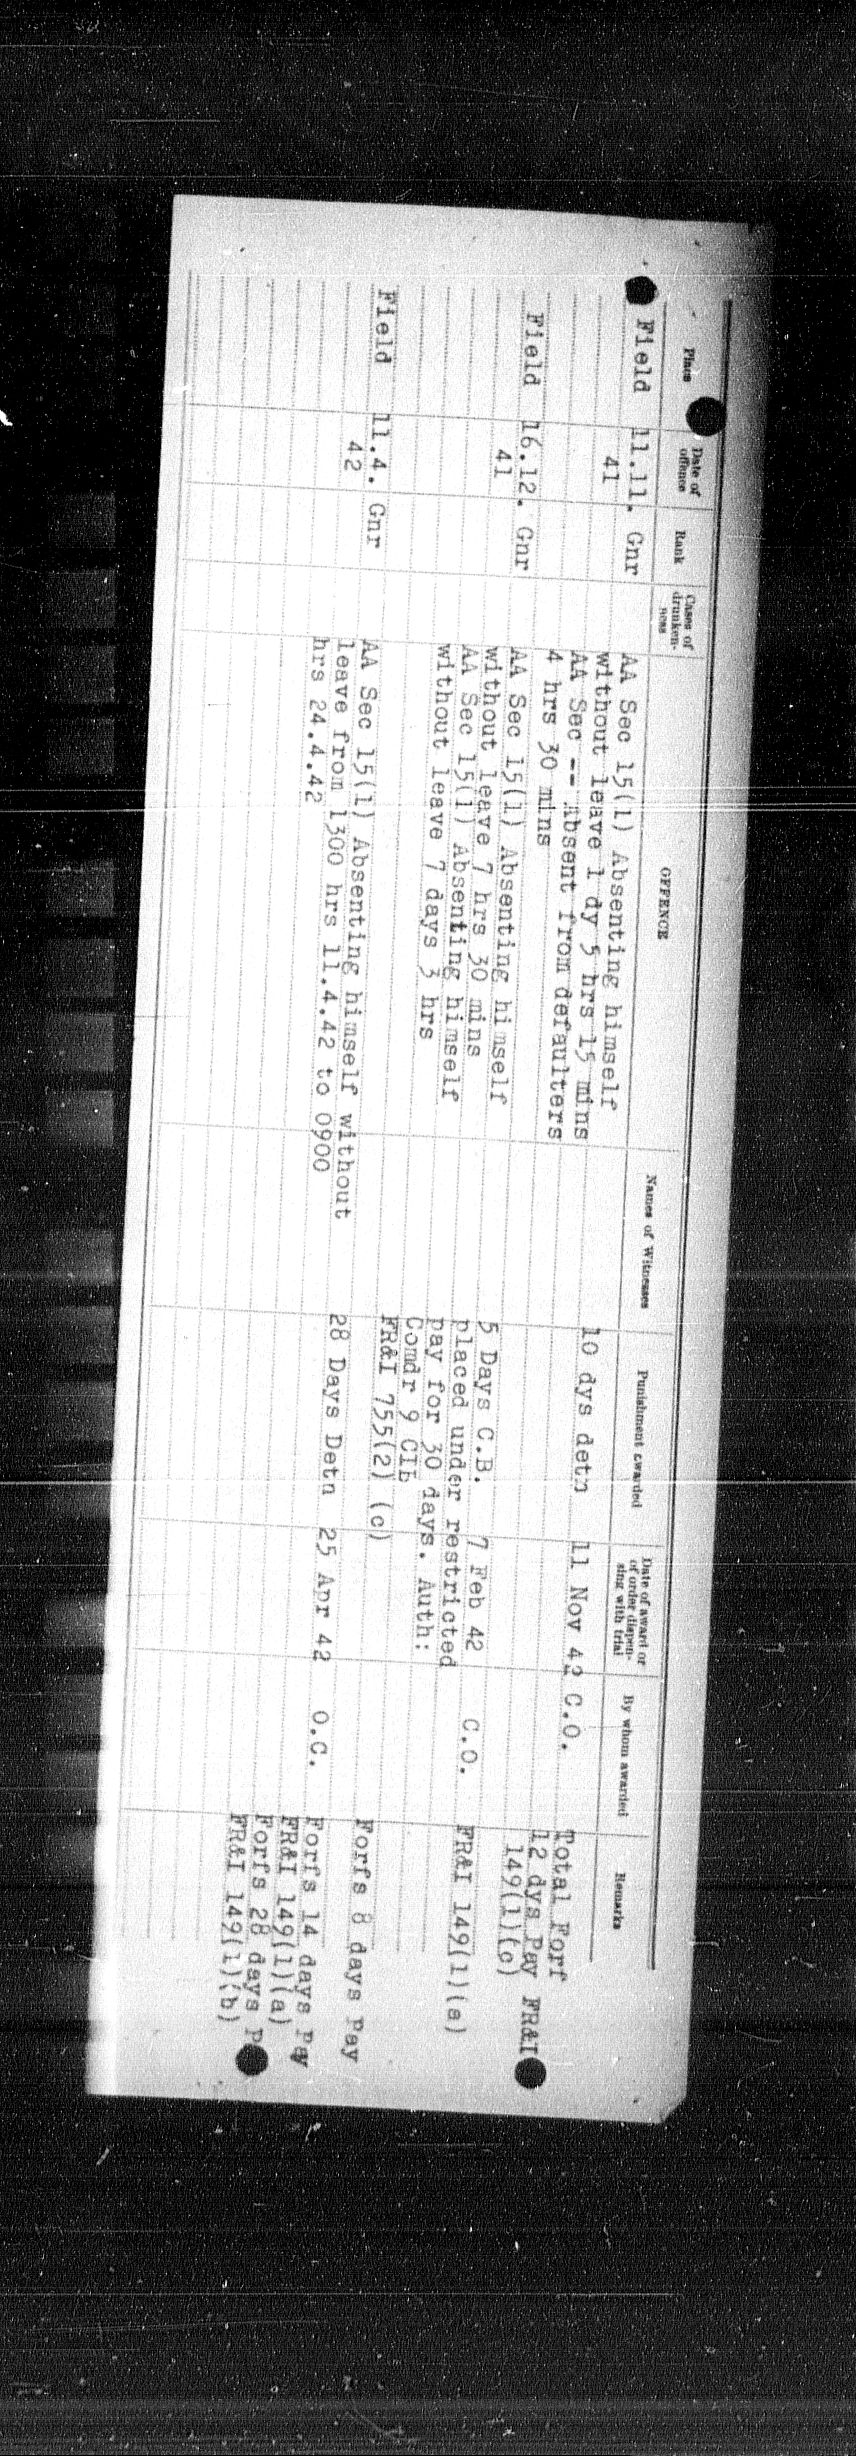 Place Date of offence Rank Cases of drunken-ness OFFENCE Names of Witnesses Punishment awarded Date of award or of order dispen-sing with trial By whom awarded Remarks
Field 11.11. Gnr AA Sec 15(1) Absenting himself
41 without leave 1 dy 5 hrs 15 mins 10 dys detn 11 Nov 42 C.O. Total Forf
AA Sec -- Absent from defaulters 12 dys Pay FR&I
4 hrs 30 mins 149(1)(c)
Field 16.12. Gnr AA Sec 15(1) Absenting himself
41 without leave 7 hrs 30 mins 5 Days C.B. 7 Feb 42 C.O. FR&I 149(1)(a)
AA Sec 15(1) Absenting himself placed under restricted
without leave 7 days 3 hrs pay for 30 days. Auth:
Comdr 9 CIB
FR&I 755(2) (c) Forfs 8 days Pay
Field 11.4. Gnr AA Sec 15(1) Absenting himself without
42 leave from 1300 hrs 11.4.42 to 0900 28 Days Detn 25 Apr 42 O.C. Forfs 14 days Pay
hrs 24.4.42 FR&I 149(1)(a)
Forfs 28 days P
FR&I 149(1)(b)